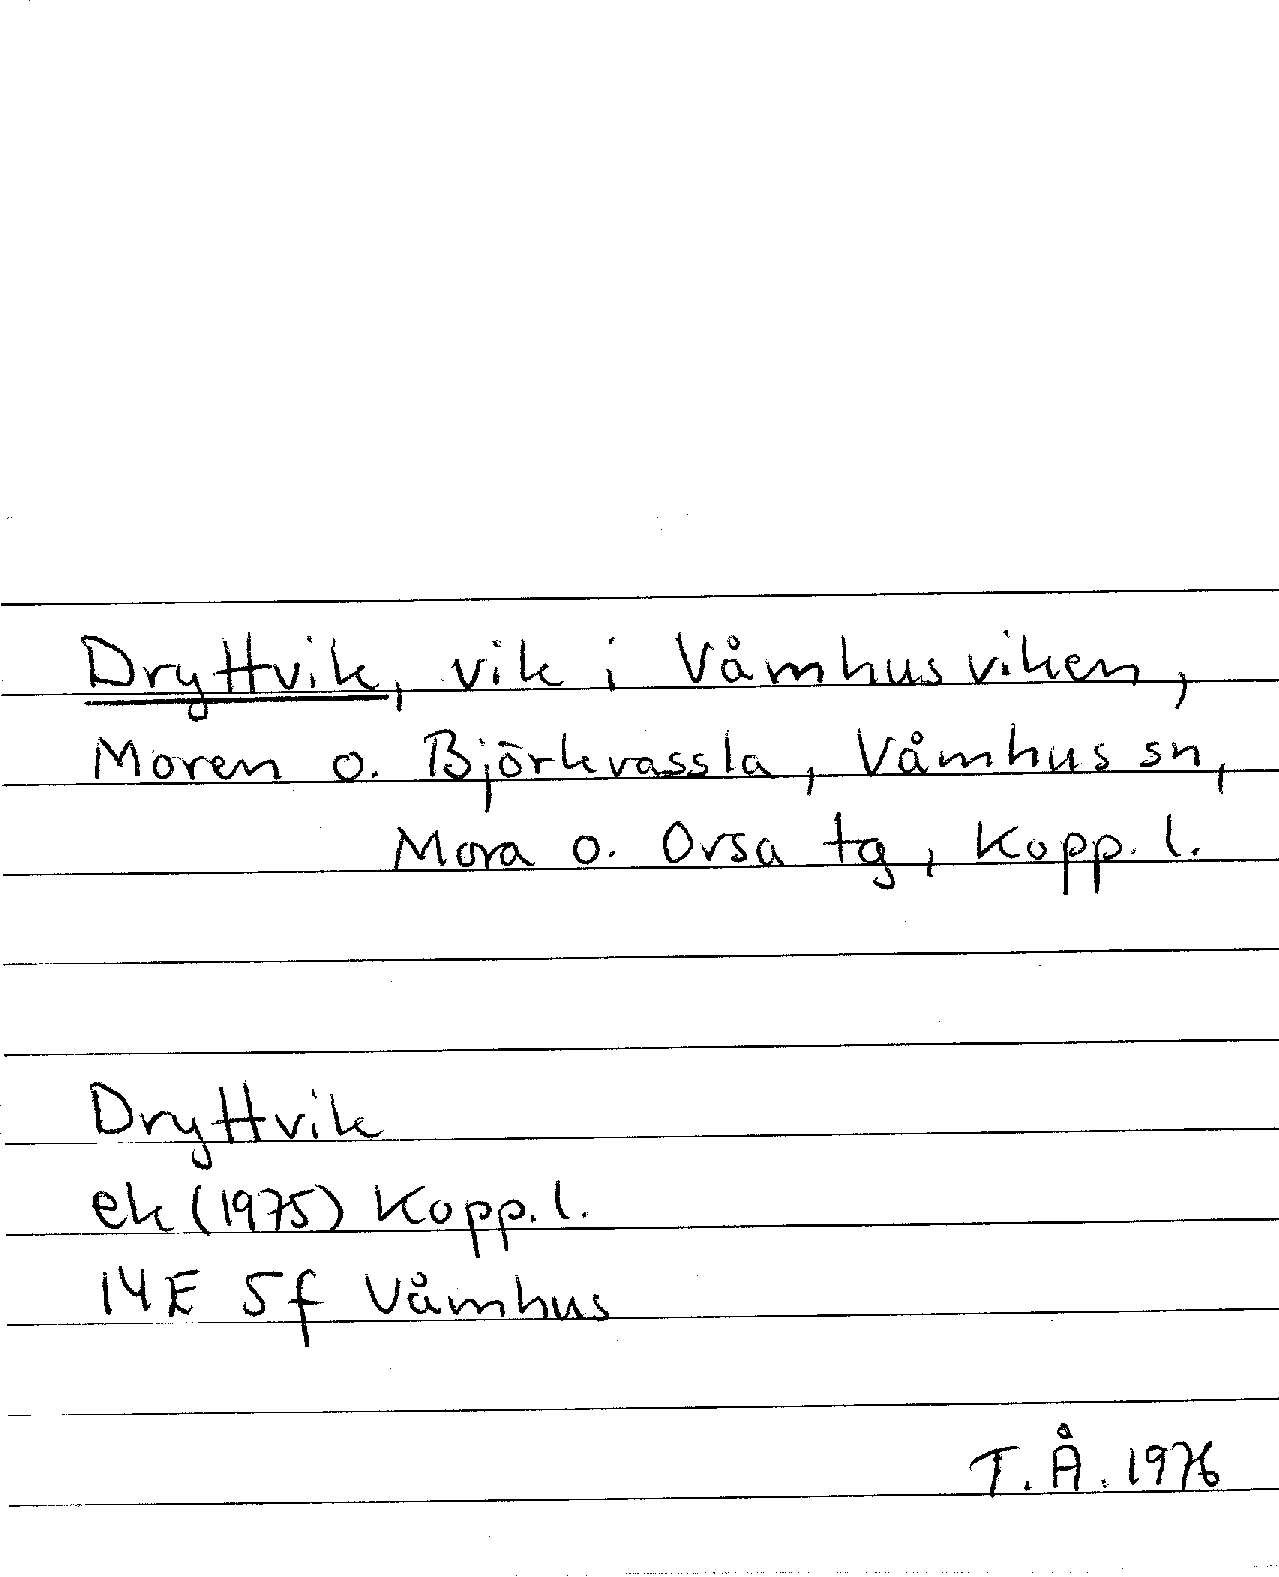 Dryttvik, vik i Våmhusviken,
Moren o. Björkvassla, Våmhus sn,
Mora o. Orsa tg, Kopp. l.
Dryttvik
ek (1975) Kopp. l.
14E 5f Våmhus
T. Å. 1976